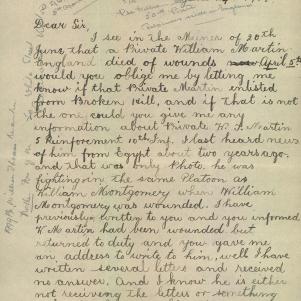 Dear Sir,
I see in the Miner of 20th
June that a Private William Martin
England died of wounds April 5th
would you oblige me by letting me
know if that Private Martin enlisted
from Broken Hill, and if that is not
the one could you give me any
information about Private W. J. Martin
5 Reinforement 10th Inf. I last heard news
of him from Egypt about two years ago.
and that was only Photo. he was
fighting in the same Platoon as
William Montgomery when William
Montgomery was wounded. I have
previously written to you and you informed
W Martin had been wounded but
returned to duty and you gave me
an address to write to him, well I have
written several letters and received
no answer. And I know he is either
not reciving the letters or something